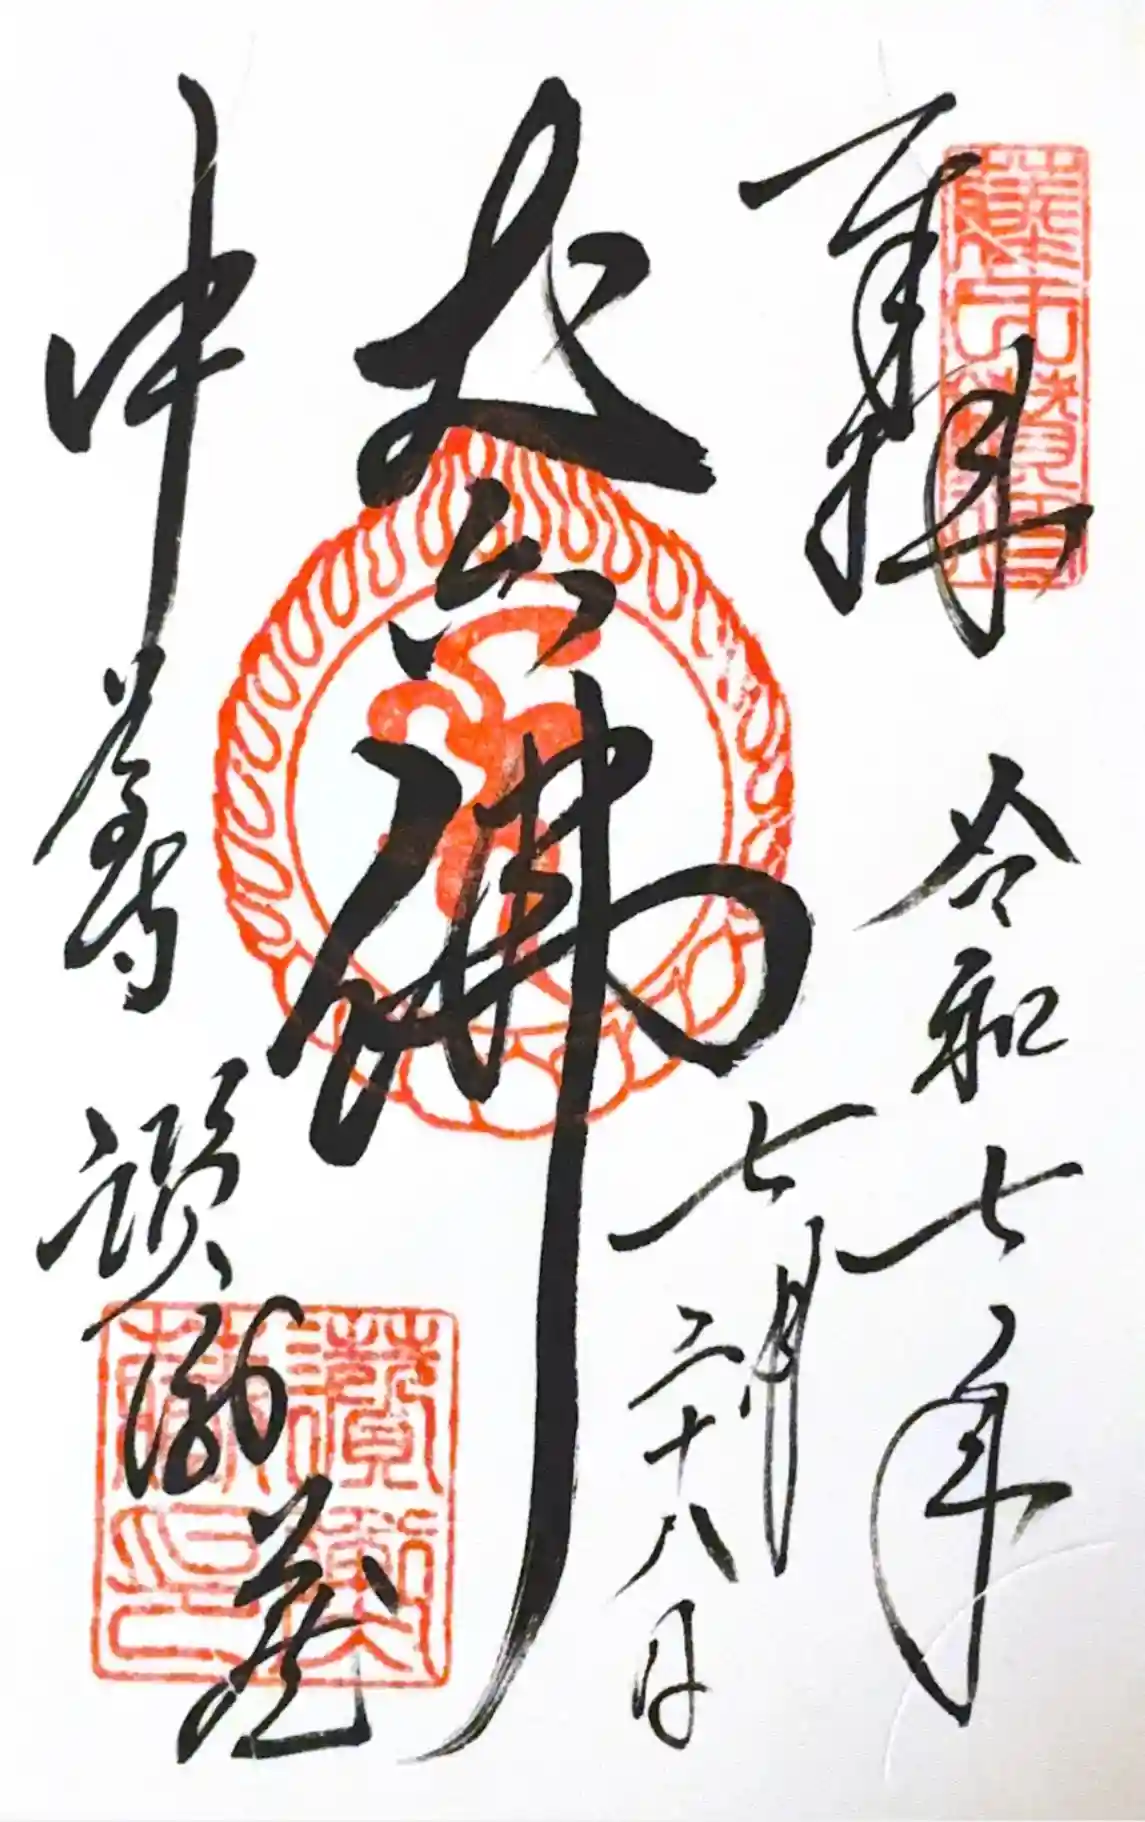 奉拝
令和七年
七月二十八日
丈六佛
中尊寺 讃衡蔵
讃衡蔵印